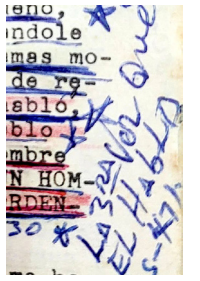 ieno,
ondole
mas mo-
de re-
habló,
blo
ombre
N HOM-
RDEN-
30
LA 3RA VEZ QUE
EL HABLO